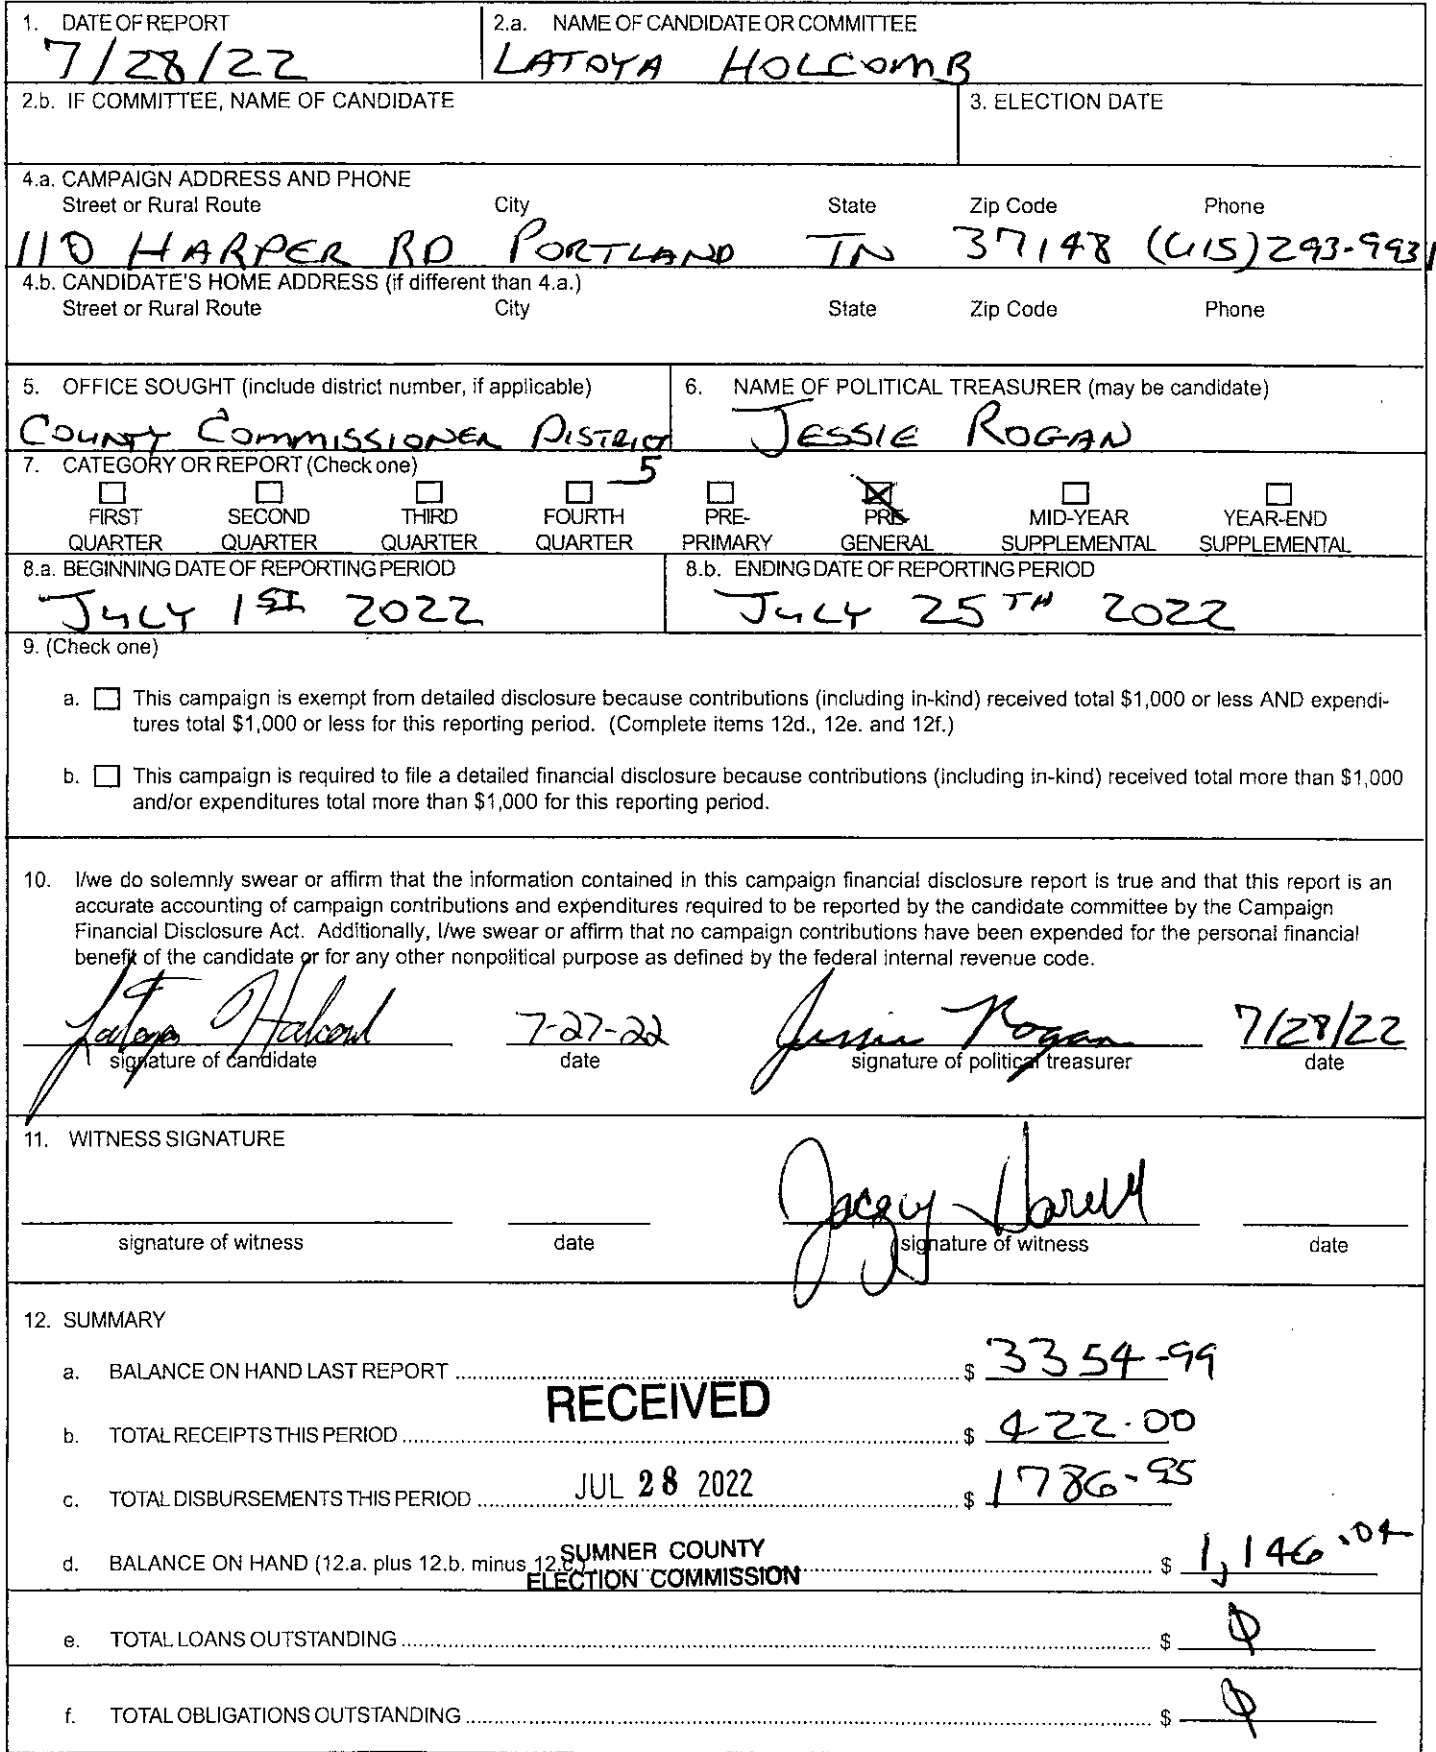 1. DATE OF REPORT
7/28/22
2.a. NAME OF CANDIDATE OR COMMITTEE
LATOYA HOLCOMB
2.b. IF COMMITTEE, NAME OF CANDIDATE
3. ELECTION DATE
4.a. CAMPAIGN ADDRESS AND PHONE
Street or Rural Route City State Zip Code Phone
110 HARPER RD PORTLAND TN 37148 (615)293-9931
4.b. CANDIDATE'S HOME ADDRESS (if different than 4.a.)
Street or Rural Route City State Zip Code Phone
5. OFFICE SOUGHT (include district number, if applicable)
COUNTY COMMISSIONER DISTRICT
5
6. NAME OF POLITICAL TREASURER (may be candidate)
JESSIE ROGAN
7. CATEGORY OR REPORT (Check one)
FIRST QUARTER
SECOND QUARTER
THIRD QUARTER
FOURTH QUARTER
PRE-PRIMARY
PRE-GENERAL
MID-YEAR SUPPLEMENTAL
YEAR-END SUPPLEMENTAL
8.a. BEGINNING DATE OF REPORTING PERIOD
JULY 1ST 2022
8.b. ENDING DATE OF REPORTING PERIOD
JULY 25TH 2022
9. (Check one)
a. This campaign is exempt from detailed disclosure because contributions (including in-kind) received total $1,000 or less AND expendi-
tures total $1,000 or less for this reporting period. (Complete items 12d., 12e. and 12f.)
b. This campaign is required to file a detailed financial disclosure because contributions (including in-kind) received total more than $1,000
and/or expenditures total more than $1,000 for this reporting period.
10. I/we do solemnly swear or affirm that the information contained in this campaign financial disclosure report is true and that this report is an
accurate accounting of campaign contributions and expenditures required to be reported by the candidate committee by the Campaign
Financial Disclosure Act. Additionally, I/we swear or affirm that no campaign contributions have been expended for the personal financial
benefit of the candidate or for any other nonpolitical purpose as defined by the federal internal revenue code.
Latoya Holcomb 7-27-22 Jessie Rogan 7/28/22
signature of candidate date signature of political treasurer date
11. WITNESS SIGNATURE
signature of witness date signature of witness date
12. SUMMARY
a. BALANCE ON HAND LAST REPORT $ 3354-99
RECEIVED
b. TOTAL RECEIPTS THIS PERIOD $ 422.00
JUL 28 2022
c. TOTAL DISBURSEMENTS THIS PERIOD $ 1786-95
SUMNER COUNTY
ELECTION COMMISSION
d. BALANCE ON HAND (12.a. plus 12.b. minus 12.c.) $ 1,146.04
e. TOTAL LOANS OUTSTANDING $ 0
f. TOTAL OBLIGATIONS OUTSTANDING $ 0